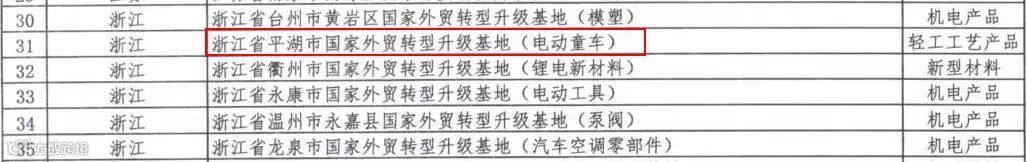 30 浙江 浙江省台州市黄岩区国家外贸转型升级基地（模塑） 机电产品
31 浙江 浙江省平湖市国家外贸转型升级基地（电动童车） 轻工工艺产品
32 浙江 浙江省衢州市国家外贸转型升级基地（锂电新材料） 新型材料
33 浙江 浙江省永康市国家外贸转型升级基地（电动工具） 机电产品
34 浙江 浙江省温州市永嘉县国家外贸转型升级基地（泵阀） 机电产品
35 浙江 浙江省龙泉市国家外贸转型升级基地（汽车空调零部件） 机电产品